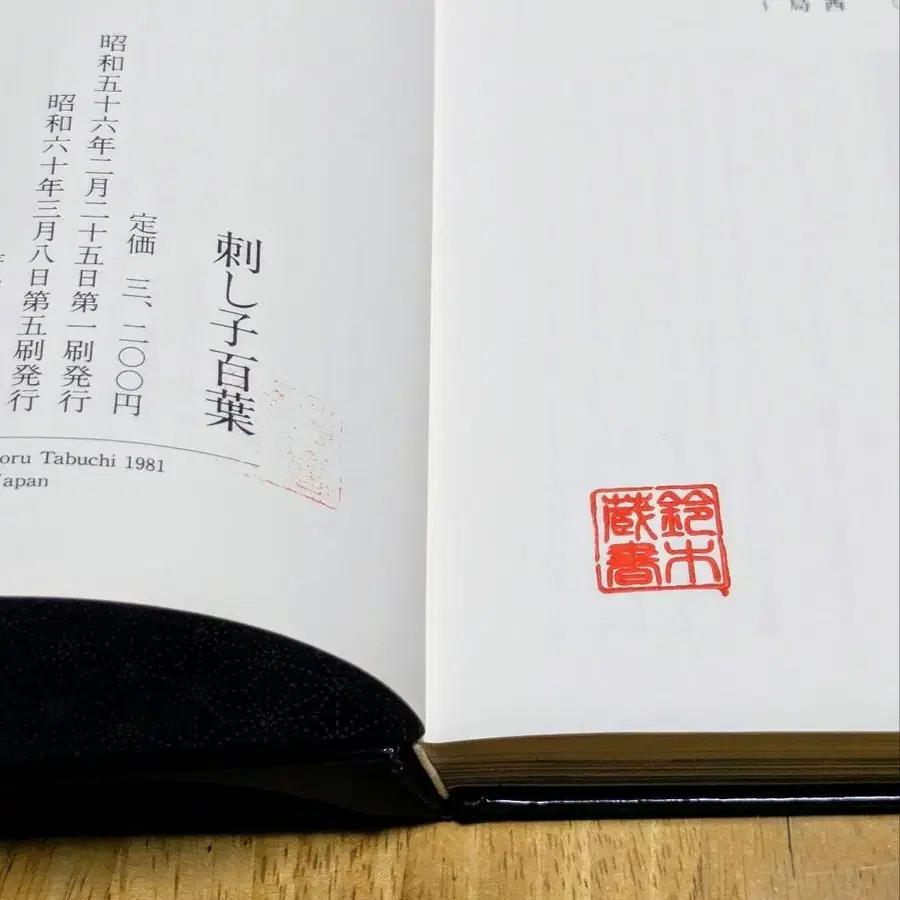 刺し子百葉
定価 三、二〇〇円
昭和五十六年二月二十五日第一刷発行
昭和六十年三月八日第五刷発行
oru Tabuchi 1981
Japan
鈴木
蔵書